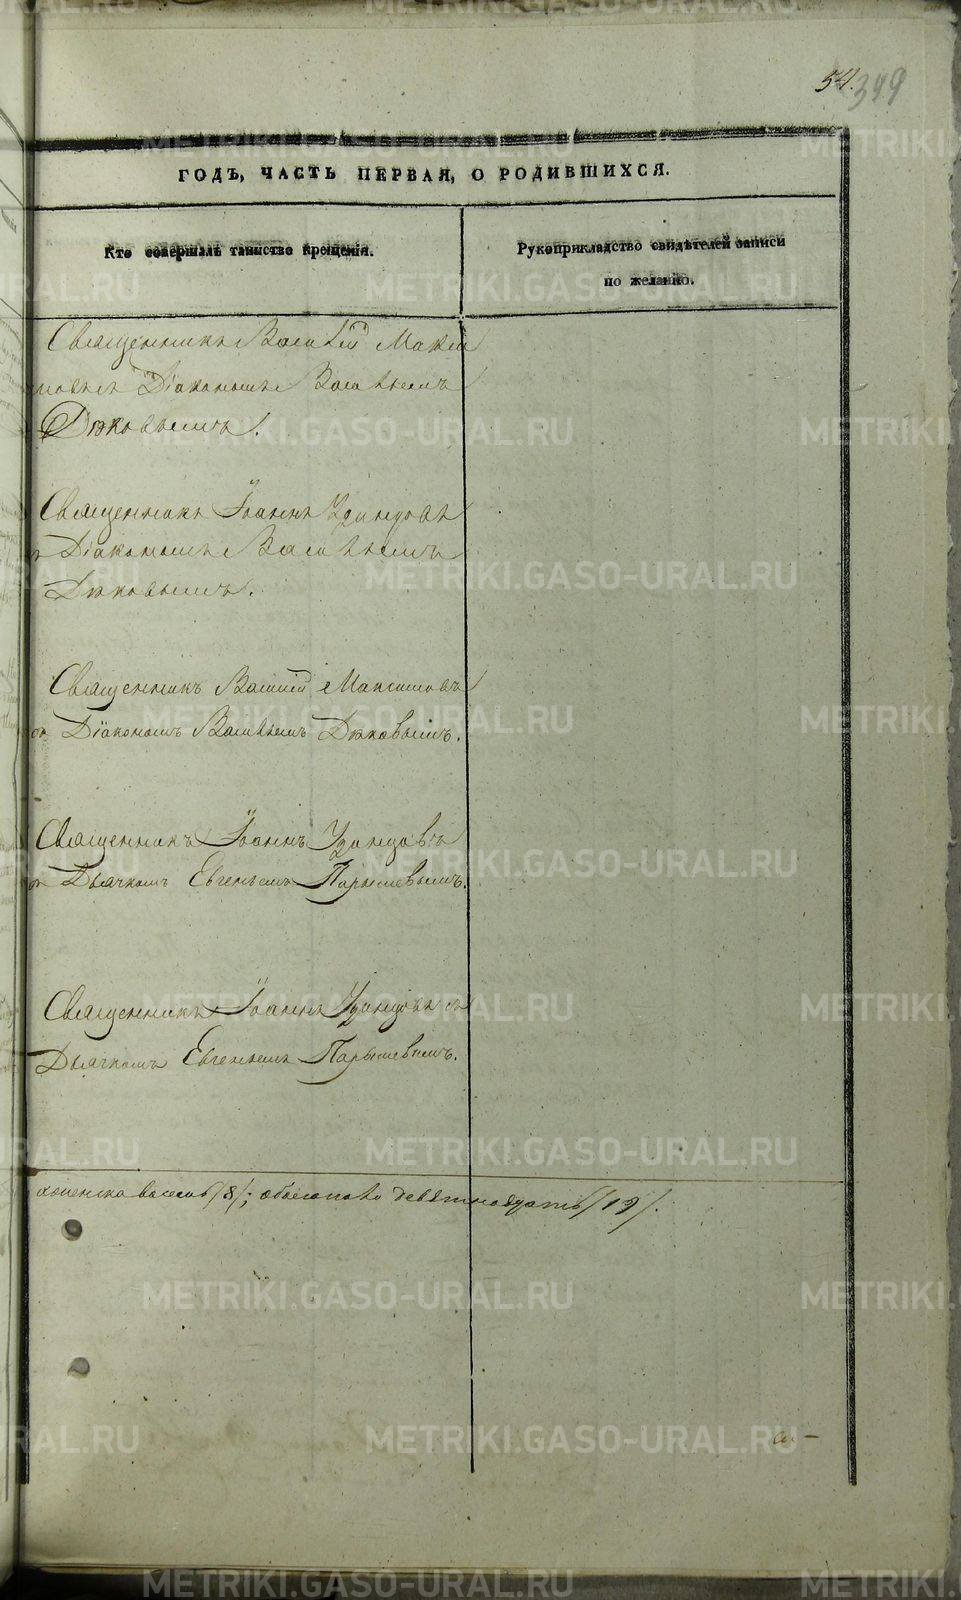 54.
399
ГОДЪ, ЧАСТЬ ПЕРВАЯ, О РОДИВШИХСЯ.
Кто совершалъ таинство крещенія.
Рукоприкладство свидѣтелей записи
по желанію.
Священникъ Василій Макси
мовъ съ Діакономъ Васильемъ
Дяковымъ.
Священникъ Іоаннъ Удинцовъ
съ Діакономъ Васильемъ
Дяковымъ.
Священникъ Василій Максимовъ
съ Діакономъ Васильемъ Дяковымъ.
Священникъ Іоаннъ Удинцовъ
съ Дьячкомъ Евгеньемъ Парышевымъ.
Священникъ Іоаннъ Удинцовъ съ
Дьячкомъ Евгеньемъ Парышевымъ.
женска восемь /8/; обоего пола девятнадцать /19/.
METRIKI.GASO-URAL.RU